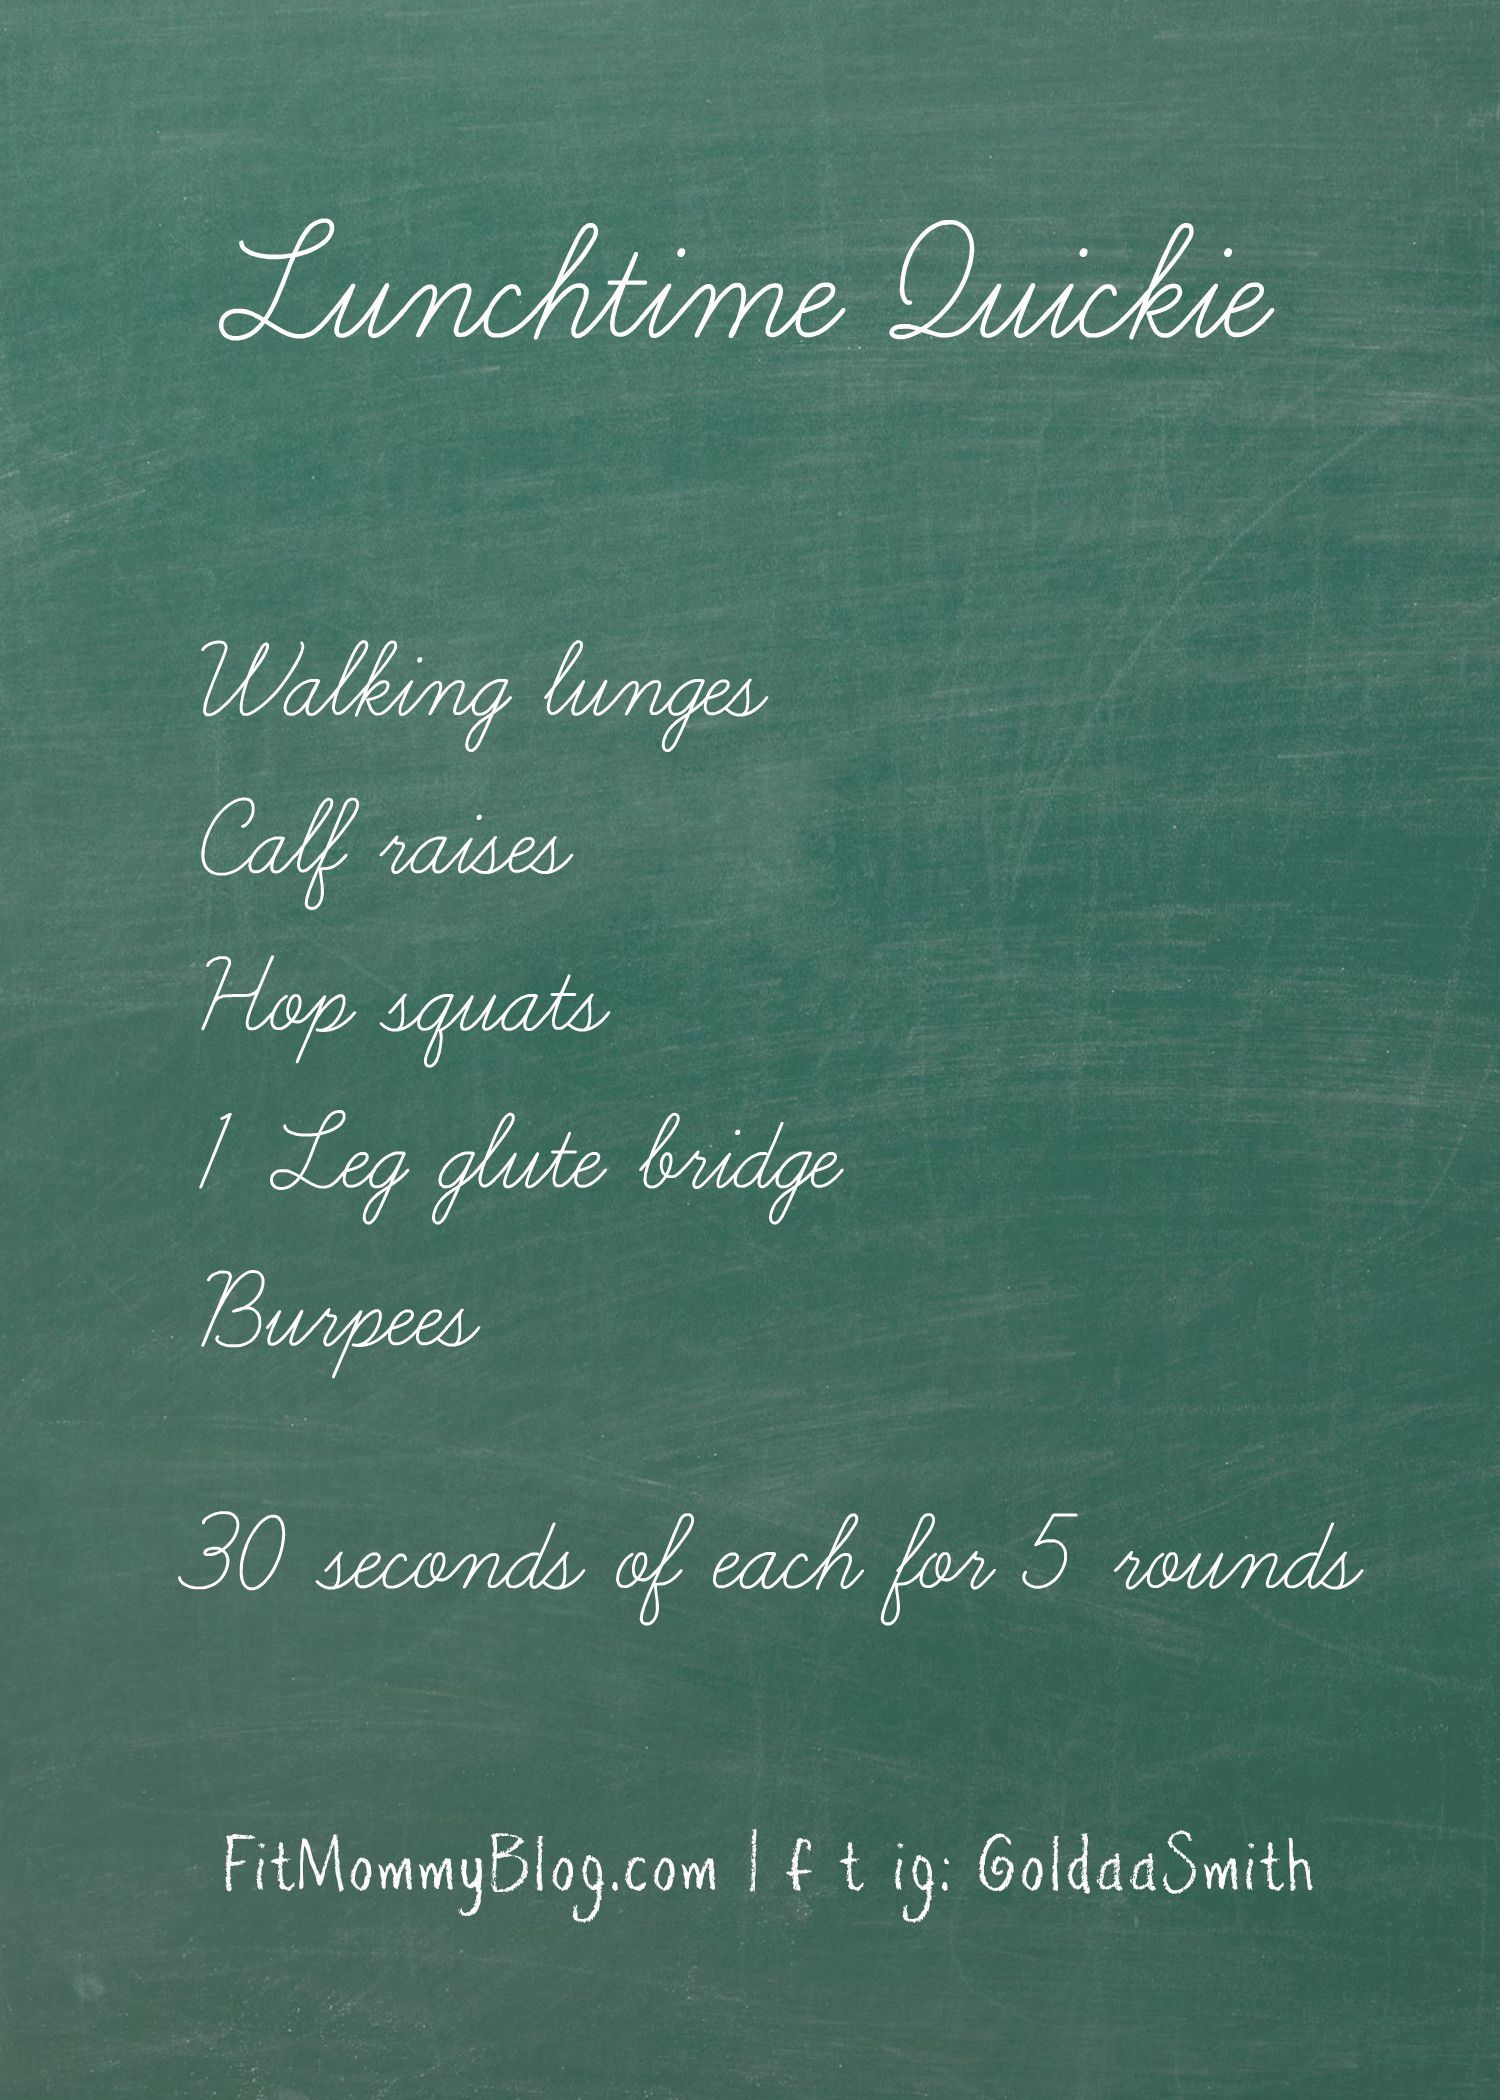 Lunchtime Quickie
Walking lunges
Calf raises
Hop squats
1 Leg glute bridge
Burpees
30 seconds of each for 5 rounds
FitMommyBlog.com | f t ig: GoldaaSmith